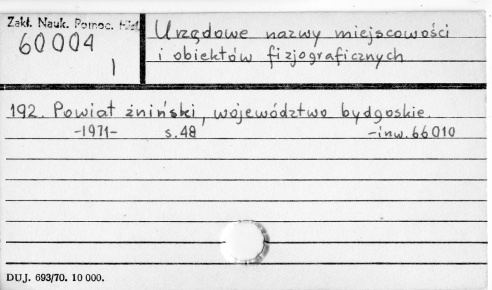 Zakł. Nauk. Pomoc. Hist.
60004
I
Urzędowe nazwy miejscowości
i obiektów fizjograficznych
192. Powiat żniński, województwo bydgoskie.
-1971- s.48 -inw.66010
DUJ. 693/70. 10 000.